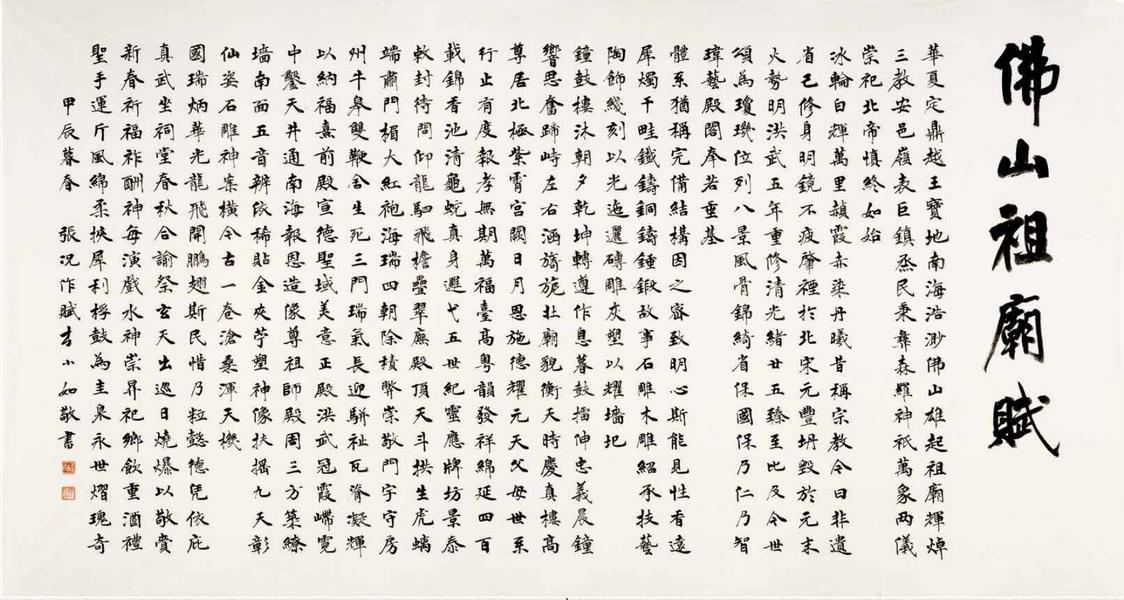 佛山祖廟賦
華夏定鼎越王寶地南海浩渺佛山雄起祖廟輝焯
三教安邑嶺表巨鎮烝民秉彝森羅神祇萬象两儀
崇祀北帝慎終如始
冰輪白輝萬里赪霞赤染丹曦昔稱宗教今曰非遺
省己修身明鏡不疲肇禋於北宋元豐坍毀於元末
火勢明洪武五年重修清光緒廿五臻至比及今世
頌為瓊璣位列八景風骨錦綺省保國保乃仁乃智
瑋藝殿閣奉若垂基
體系猶稱完備結構因之密致明心斯能見性看遠
犀燭千畦鐵鑄銅鑄錘鍛故事石雕木雕紹承技藝
陶飾綫刻以光迤邐磚雕灰塑以耀墻圯
鐘鼓樓沐朝夕乾坤轉遵作息暮鼓擂伸忠義晨鐘
響思奮蹄峙左右涵旖旎壯廟貌衡天時慶真樓高
尊居北極紫霄宮闕日月恩施德耀元天父母世系
行止有度報孝無期萬福臺高粤韻發祥綿延四百
載錦香池清龜蛇真身遷弋五世紀靈應牌坊景泰
敕封待問仰龍駟飛檐疊翠廡殿頂天斗拱生虎螭
端肅門楣大紅袍海瑞四朝除積弊崇敬門宇守房
州牛皋雙鞭舍生死三門瑞氣長迎駢祉瓦脊凝輝
以納福熹前殿宣德聖域美意正殿洪武冠霞皣霓
中鑿天井通南海報恩造像尊祖師殿周三方築繚
墻南面五音辨依稀貼金夾苧塑神像扶搖九天彰
仙姿石雕神案橫今古一卷滄桑渾天機
國瑞炳華光龍飛開鵬翅斯民惜乃粒懿德凭依庇
真武坐祠堂春秋合諭祭玄天出巡日燒爆以敬賫
新春祈福祚酬神每演戲水神崇昇祀鄉飲重酒禮
聖手運斤風綿柔挾犀利桴鼓為圭臬永世熠瑰奇
甲辰暮春 張況作賦 李小如敬書